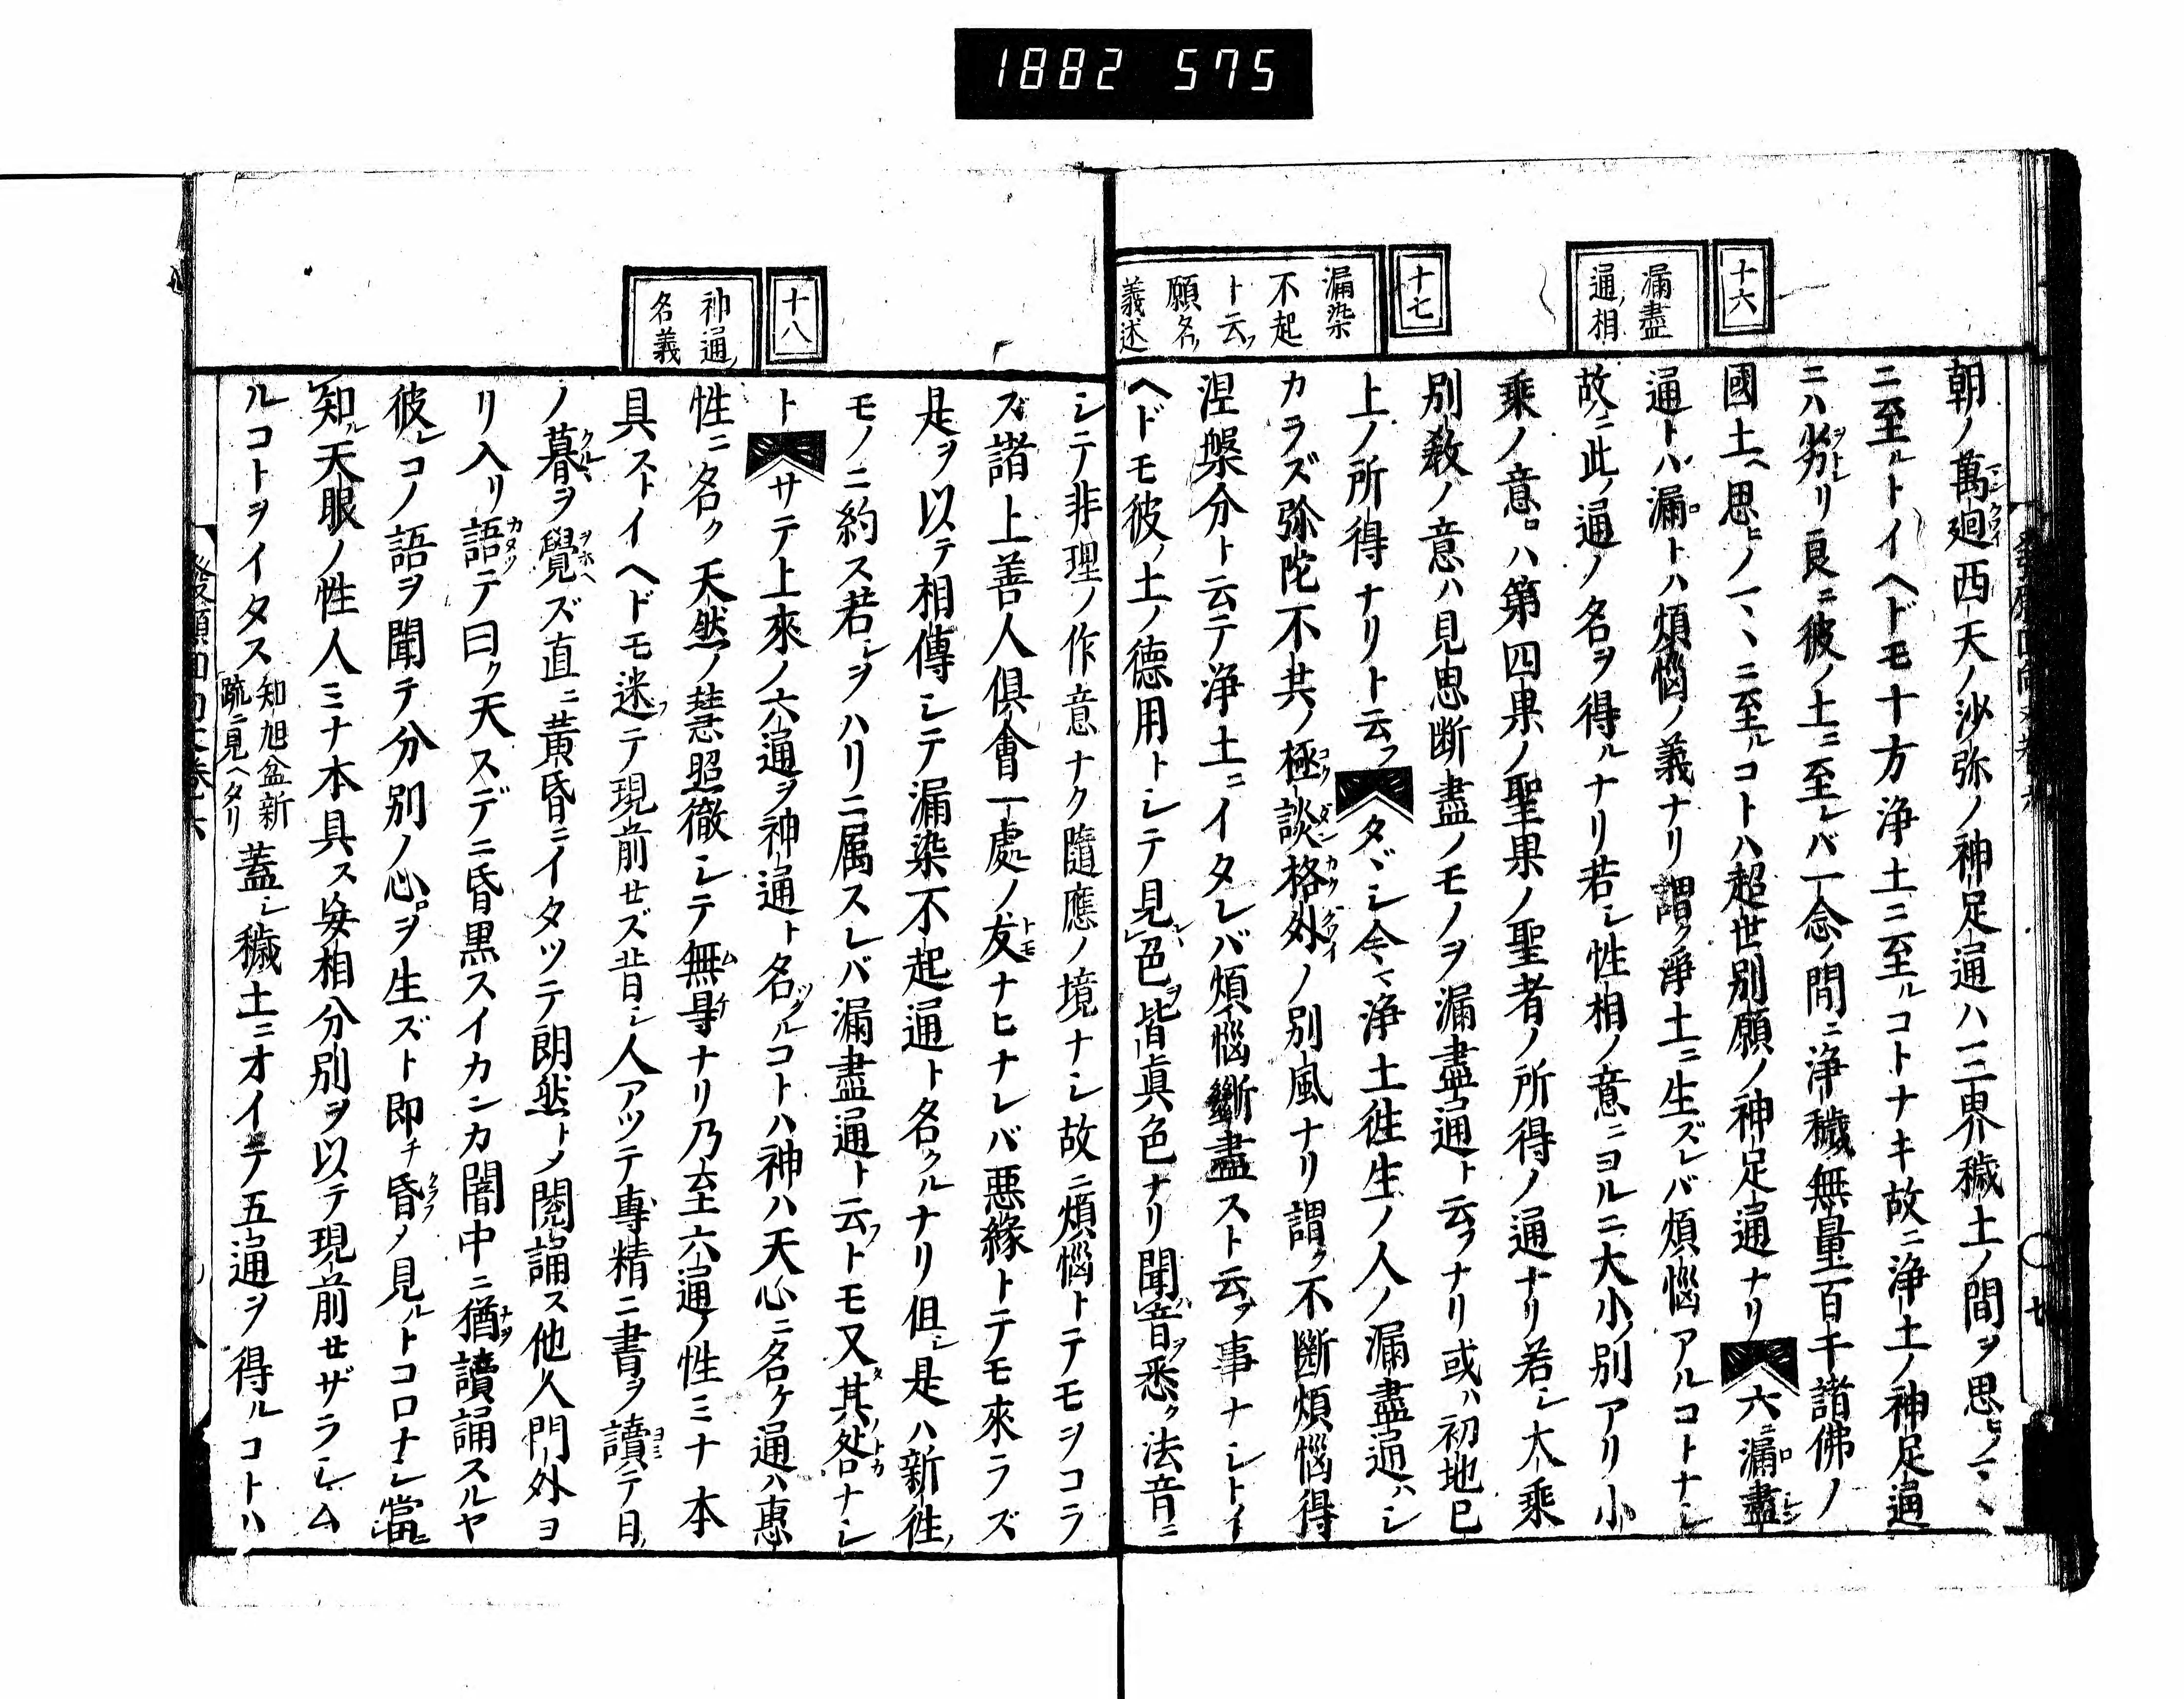 1882 575
十六
漏盡
通ノ相
十七
漏染
不起
ト云フ
願名ノ
義述
朝ノ萬廻西天ノ沙弥ノ神足通ハ三界穢土ノ間ヲ思ヒノ一丶
ニ至ルトイヘドモ十方浄土ニ至ルコトナキ故ニ浄土ノ神足通
ニハ劣リ良ニ彼ノ土ニ至レバ一念ノ間ニ浄穢無量百千諸佛ノ
國土ヘ思ヒノ一丶ニ至ルコトハ超世別願ノ神足通ナリ六ニ漏盡
通トハ漏トハ煩惱ノ義ナリ謂ク浄土ニ生ズレバ煩惱アルコトナシ
故ニ此ノ通ノ名ヲ得ルナリ若シ性相ノ意ニヨルニ大小ノ別アリ小
乗ノ意ハ第四果ノ聖果ノ聖者ノ所得ノ通ナリ若シ大乘
別教ノ意ハ見思断盡ノモノヲ漏盡通ト云フナリ或ハ初地已
上ノ所得ナリト云フタヾシ今マ浄土徃生ノ人ノ漏盡通ハシ
カラズ弥陀不共ノ極談格外ノ別風ナリ謂ク不斷煩惱得
涅槃分ト云テ浄土ニイタレバ煩惱斷盡スト云フ事ナシトイ
ヘドモ彼ノ土ノ德用トシテ見レハ色ヲ皆眞色ナリ聞ケハ音ヲ悉ク法音ニ
十八
神通ノ
名義
シテ非理ノ作意ナク隨應ノ境ナシ故ニ煩惱トテモヲコラ
ズ諸上善人俱會一處ノ友ナヒナレバ悪緣トテモ來ラズ
是ヲ以テ相傳シテ漏染不起通ト名クルナリ但シ是ハ新徃ノ
モノニ約ス若シヲハリニ属スレバ漏盡通ト云フトモ又其ノ咎ナシ
トサテ上來ノ六通ヲ神通ト名ツクルコトハ神ハ天心ニ名ケ通ハ惠
性ニ名ク天然ノ慧照徹シテ無㝵ナリ乃至六通ノ性ミナ本
具ストイヘドモ迷フテ現前セズ昔シ人アツテ專精ニ書ヲ讀テ日
ノ暮ヲ覺ズ直ニ黄昏ニイタツテ朗然トメ閲誦ス他人門外ヨ
リ入リ語テ曰ク天スデニ昏黒スイカンカ闇中ニ猶讀誦スルヤ
彼レコノ語ヲ聞テ分別ノ心ヲ生ズト即チ昏ノ見ルトコロナシ當ニ
知ル天眼ノ性人ミナ本具ス妄相分別ヲ以テ現前セザラシム
ルコトヲイタス知旭盆新疏ニ見ヘタリ蓋シ穢土ニオイテ五通ヲ得ルコトハ